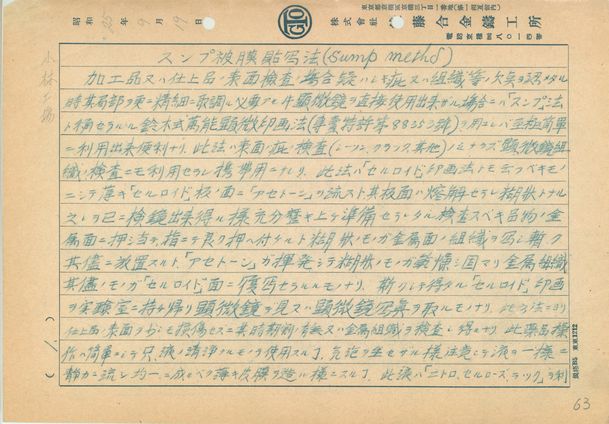 昭和25年9月19日
株式會社 藤合金鑄工所
スンプ被膜貼写法(Sump method)
加工品又ハ仕上品ノ表面検査ノ場合疑ハシキ疵又ハ組織等ノ欠点ヲ認メタル
時其局部ヲ更ニ精細ニ取調ル必要アルモ顕微鏡ヲ直接使用出来ザル場合ハ「スンプ法
ト称セラルル鈴木式萬能顕微印画法(専賣特許第 号)ヲ用ユレバ至極簡単
ニ利用出来便利ナリ、此法ハ表面ノ疵ノ検査(レーン、クラック、其他)ノミナラズ顕微鏡組
織ノ検査ニモ利用セラレ携帯用ニナリ、此法ハ「セルロイド」印画法トモ云フベキモノ
ニシテ薄キ「セルロイド」板ノ面ニ「アセトーン」ヲ流スト其板面ハ熔解セラレ糊状トナル
之レヲ已ニ検鏡出来得ル様充分磨キ上ゲ準備セラレタル検査スベキ品物ノ金
属面ニ押当テ、指ニテ良ク押ヘ付ケルト糊状ノモノガ金属面ノ組織ヲ写シ暫ク
其儘ニ放置スルト、「アセトーン」ガ揮発シテ糊状ノモノガ乾燥シ固マリ金属組織
其儘ノモノガ「セルロイド」面ニ復写セラルルモノナリ、斯クシテ得タル「セルロイド」印画
ヲ実験室ニ持チ帰リ顕微鏡ヲ見又ハ顕微鏡写真ヲ取ルモノナリ、此方法ニヨリ
仕上品ノ表面ヲ少シモ損傷セズニ其時 有無又ハ金属組織ヲ検査シ得ルナリ、此薬品操
作ハ簡単ニシテ只、液ノ清浄ナルモノヲ使用スル事、気泡ヲ生セザル様注意シテ液ヲ一様ニ
静カニ流シ均一ニ成ルベク薄キ皮膜ヲ造ル様ニスル事、此液ハ「ニトロ、セルローズ、ラック」ヲ利
小林
(1)
63